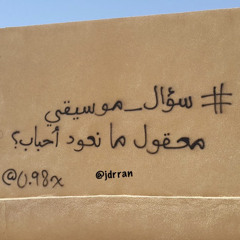 #سؤال_موسيقي
معقول ما نعود أحباب؟
@jdrran
@0.98x